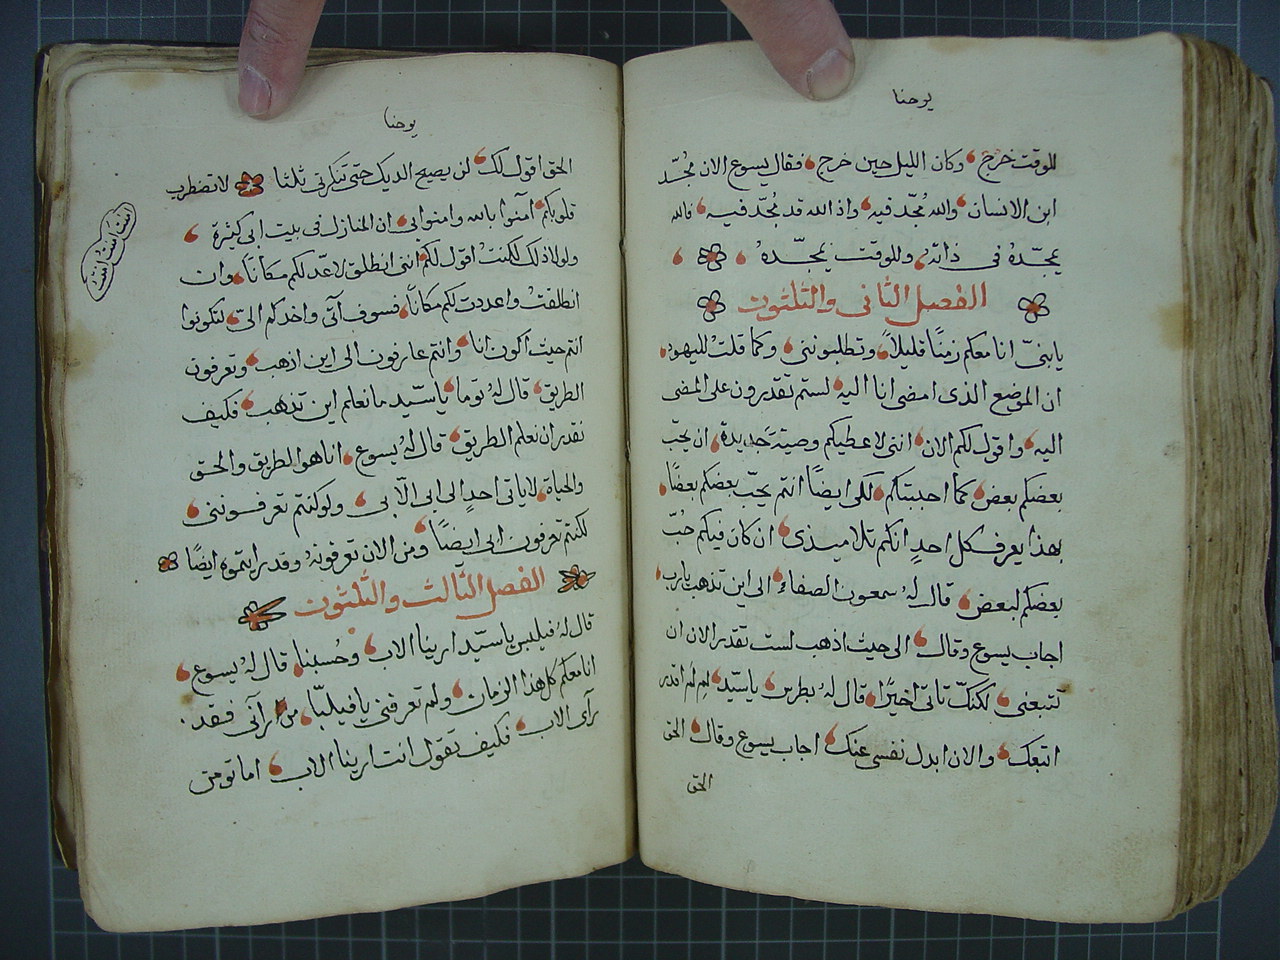 يوحنا
للوقت خرج وكان الليل حين خرج فقال يسوع الان مُجّد
ابن الانسان والله مُجّد فيه واذ الله قد مُجّد فيه فالله
يمجّدهُ في ذاته وللوقت يمجّدهُ
الفصل الثاني والثلثون
يا بنيّ انا معكم زمنًا قليلاً وتطلبونني وكما قلتُ لليهود
ان الموضع الذي امضي انا اليه لستم تقدرون على المضي
اليه واقول لكم الان انني لاعطيكم وصيّةً جديدة ان يحبّ
بعضكم بعض كما احببتكم لكي ايضًا انتم يحبّ بعضكم بعضًا
بهذا يعرف كل احدٍ انكم تلاميذي ان كان فيكم حُبّ
بعضكم لبعض قال لهُ سمعون الصفاء الى اين تذهب يا رب
اجاب يسوع وقال الى حيث اذهب لست تقدر الان ان
تتبعني لكنّك تاتي اخيرًا قال لهُ بطرس يا سيّد لِمَ لم اقدر
اتبعك والان ابدل نفسي عنك اجاب يسوع وقال الحق
الحق
يوحنا
الحق اقول لك لن يصيح الديك حتى تنكرني ثلثا لا تضطرب
قلوبكم آمنوا بالله وامنوا بي ان المنازل في بيت ابي كثيرة
ولولا ذلك لكنتُ اقول لكم انني انطلق لاعّد لكم مكانًا وان
انطلقتُ واعددت لكم مكانًا فسوف آتي واخدكم اليّ لتكونوا
انتم حيث اكون انا وانتم عارفون الى اين اذهب وتعرفون
الطريق قال لهُ توما يا سيّد ما نعلم اين تذهب فكيف
نقدر ان نعلم الطريق قال لهُ يسوع انا هو الطريق والحق
والحياة لا ياتي احدٍ الى ابي الّا بي ولو كنتم تعرفونني
لكنتم تعرفون ابي ايضًا ومن الان تعرفونهُ وقد رايتموهُ ايضًا
الفصل الثالث والثلثون
قال لهُ فيليس يا سيّد ارينا الاب وحُسبنا قال لهُ يسوع
انا معكم كل هذا الزمان ولم تعرفني يا فيلبّا من رآني فقد
رآى الاب فكيف تقول انت ارينا الاب اما تومن